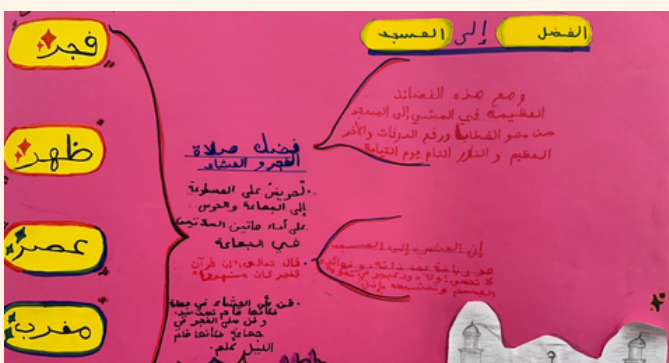 الفضل إلى المسجد
فجر
ظهر
عصر
مغرب
ومع هذه الفضائل
العظيمة في المشي إلى المسجد
من محو الخطايا ورفع الدرجات والأجر
العظيم و النور التام يوم القيامة
فضل صلاة
الفجر و العشاء
على المسارعة
إلى الجماعة والحرص
على أداء هاتين الصلاتين
في الجماعة
قال تعالى: "إن قرآن
الفجر كان مشهودا"
إن المشي إلى المسجد
هو رياضة
لا تحصى
الجسم
من صلى العشاء في جماعة
فكأنما قام نصف الليل
ومن صلى الفجر في
جماعة فكأنما قام
الليل كله.